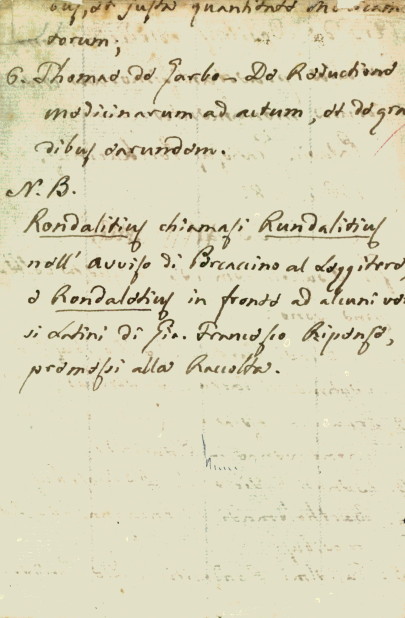 bus, et justa quantitate
torum;
6. Thomae de Garbo - De Reductione
medicinarum ad actum, et de gra
dibus earundem.
N. B.
Rondalitius chiamasi Rundalitius
nell' avviso di Porcaccino al Leggitore,
e Rondaletius in fronte ad alcuni ver
si Latini di Gio. Francesco Ripense,
premessi alla Raccolta.